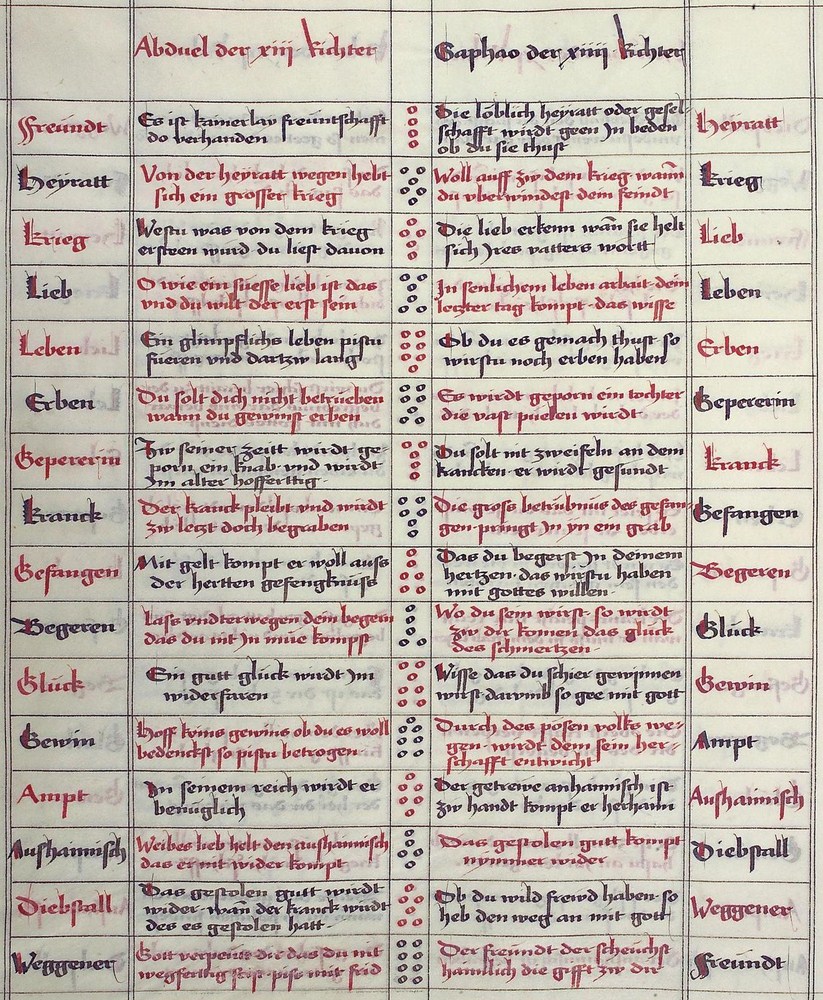 Abduel der xiij Richter
Gaphao der xiiij Richter
Freundt
Es ist kainerlay freuntschafft
do verhanden
Die löblich heyratt oder gesel-
schafft wirdt geen Jn beden
ob du sie thust
Heyratt
Heyratt
Von der heyratt wegen hebt
sich ein grosser krieg
Woll auff zw dem krieg wann
du vberwindest dein feindt
Krieg
Krieg
Westu was von dem krieg
ersteen wurd du liest dauon
Die lieb erkenn wan sie helt
sich Jres vatters wortt
Lieb
Lieb
O wie ein suesse lieb ist das
vnd du wilt der erst sein
Jn senlichem leben arbait dein
letzter tag kompt das wisse
Leben
Leben
Ein glimpflichs leben pistu
fueren vnd dartzw lang
Ob du es gemach thust so
wirstu noch erben haben
Erben
Erben
Du solt dich nicht betrueben
wann du gewinst erben
Es wirdt geporn ein tochter
die vast puelen wirdt
Gepererin
Gepererin
Zw seiner zeitt wirdt ge-
porn ein knab vnd wirdt
Jm alter hofferttig
Du solt nit zweifeln an dem
krancken er wirdt gesundt
Kranck
Kranck
Der kranck pleibt vnd wirdt
zw letzt doch begraben
Die gross betrubnus des gefan-
gen pringt Jn yn ein grab
Gefangen
Gefangen
Mit gelt kompt er woll auss
der hertten gefengknuss
Das du begerst Jn deinem
hertzen das wirstu haben
mit gottes willen
Begeren
Begeren
Lass vndterwegen dein begern
das du nit Jn müe kompst
Wo du sein wirst so wirdt
zw dir komen das glück
des schmertzen
Glück
Glück
Ein gutt glück wirdt Jm
widerfaren
Wisse das du schier gewinnen
wirst darumb so gee mit gott
Gewin
Gewin
Hoff keins gewins ob du es woll
bedenckst so pistu betrogen
Durch des posen volks we-
gen wirdt dem sein her-
schafft entwicht
Ampt
Ampt
Jn seinem reich wirdt er
benüglich
Der getrewe anhaimisch ist
zw handt kompt er herhaim
Aushaimisch
Aushaimisch
Weibes lieb helt den aushaimisch
das er nit wider kompt
Das gestolen gutt kompt
nymmer wider
Diebstall
Diebstall
Das gestolen gutt wirdt
wider wan der kranck wirdt
des es gestolen hatt
Ob du wild frewd haben so
heb den weg an mit gott
Weggener
Weggener
Gott verpeut dir das du nit
wegferttig seist piss mit frid
Der freundt der scheuchst
haimlich die gifft zw dir
Freundt